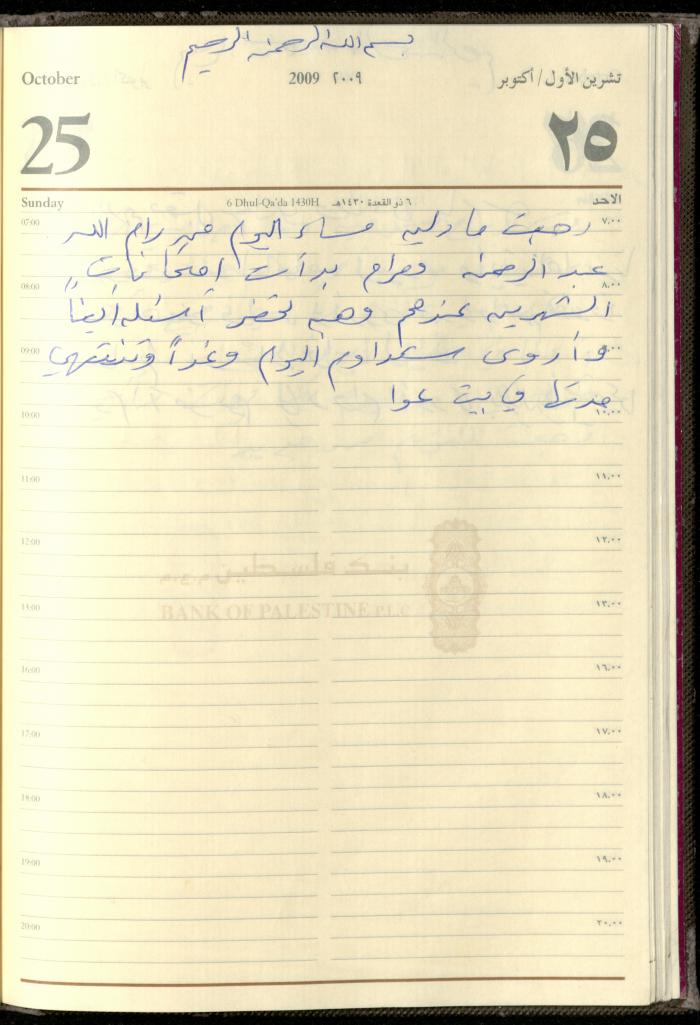 بسم الله الرحمن الرحيم
October 2009 ٢٠٠٩ تشرين الأول/أكتوبر
25 ٢٥
Sunday 6 Dhul-Qa'da 1430H ٦ ذو القعدة ١٤٣٠هـ الاحد
07:00 ٧,٠٠
رجعت مادلين مساء اليوم من رام الله
عبد الرحمن ومرام بدأت امتحانات
08:00 ٨,٠٠
الشهرين عندهم وهي تحضر أسئله أيضاً
09:00 ٩,٠٠
وأروى ستداوم اليوم وغداً وتنتهي
مدتها في بيت عوا
10:00 ١٠,٠٠
11:00 ١١,٠٠
12:00 ١٢,٠٠
بنك فلسطين م.ع.م
13:00 ١٣,٠٠
BANK OF PALESTINE P.L.C
16:00 ١٦,٠٠
17:00 ١٧,٠٠
18:00 ١٨,٠٠
19:00 ١٩,٠٠
20:00 ٢٠,٠٠